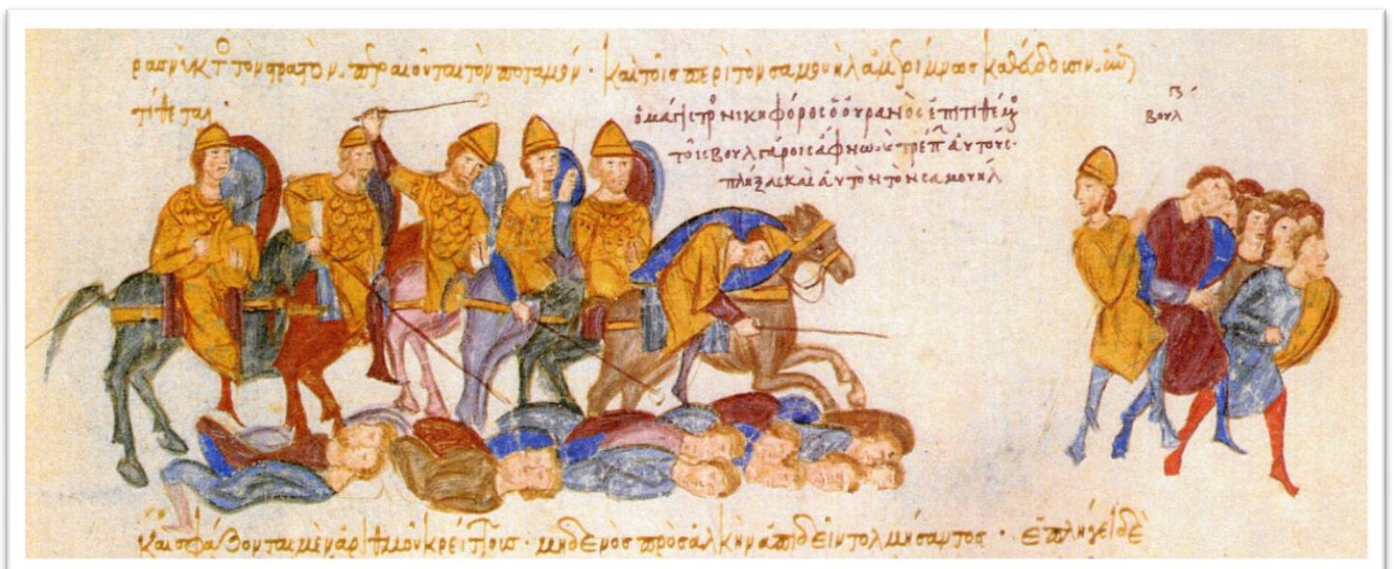 τὸν στρατὸν. περαιοῦται τὸν ποταμόν · καὶ τοῖς περὶ τὸν σαμουὴλ ἀμερίμνως καθεύδουσιν. ἐπι
τίθεται ·
ὁ μάγιστρ νικηφόρος ὁ οὐρανὸς ἐπιτιθέμ
τοῖς βουλγάροις ἄφνω. κ τρέπ αὐτούς ·
πλήξας καὶ αὐτὸν τὸν σαμουήλ
βουλγ
καὶ σφάζονται μὲν ἀριθμοῦ κρείττους · μηδενὸς πρὸς ἀλκὴν ἀπιδεῖν τολμήσαντος · ἐπλήγει δὲ